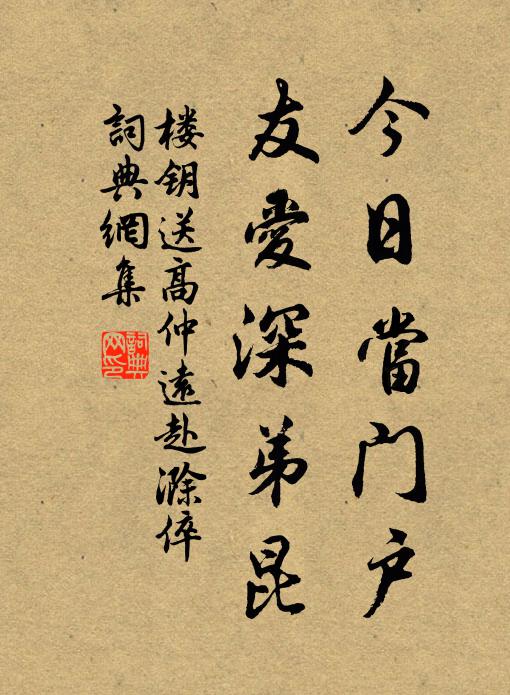 今日當门户
友愛深弟昆
楼钥送高仲遠赴滁倅
詞典網集
詞典網印